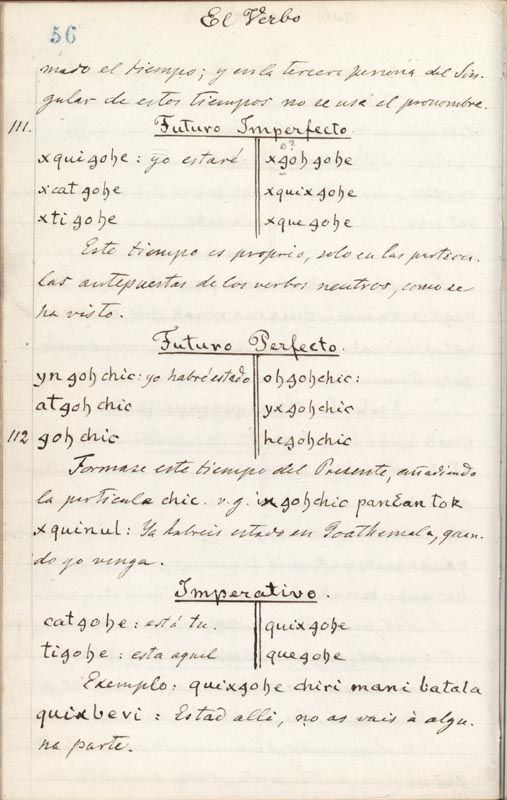 El Verbo
56
mado el tiempo; y en la tercera persona del Sin-
gular de estos tiempos no se usa el pronombre.
111. Futuro Imperfecto.
o?
xquigohe: yo estaré xgohgohe
xcatgohe xquixgohe
xtigohe xquegohe
Este tiempo es proprio, solo en las particu-
las antepuestas de los verbos neutros, como se
ha visto.
Futuro Perfecto.
yn gohchic: yo habré estado ohgohchic:
atgohchic yxgohchic
112 gohchic hegohchic
Formase este tiempo del Presente, añadiendo
la particula chic. v.g. ix gohchic panƐan tok
xquinul: Ya habreis estado en Goathemala, quan-
do yo venga.
Imperativo.
catgohe: está tu. quixgohe
tigohe: esta aquel quegohe
Exemplo: quixgohe chiri mani batala
quixbevi: Estad alli, no os vais à algu-
na parte.